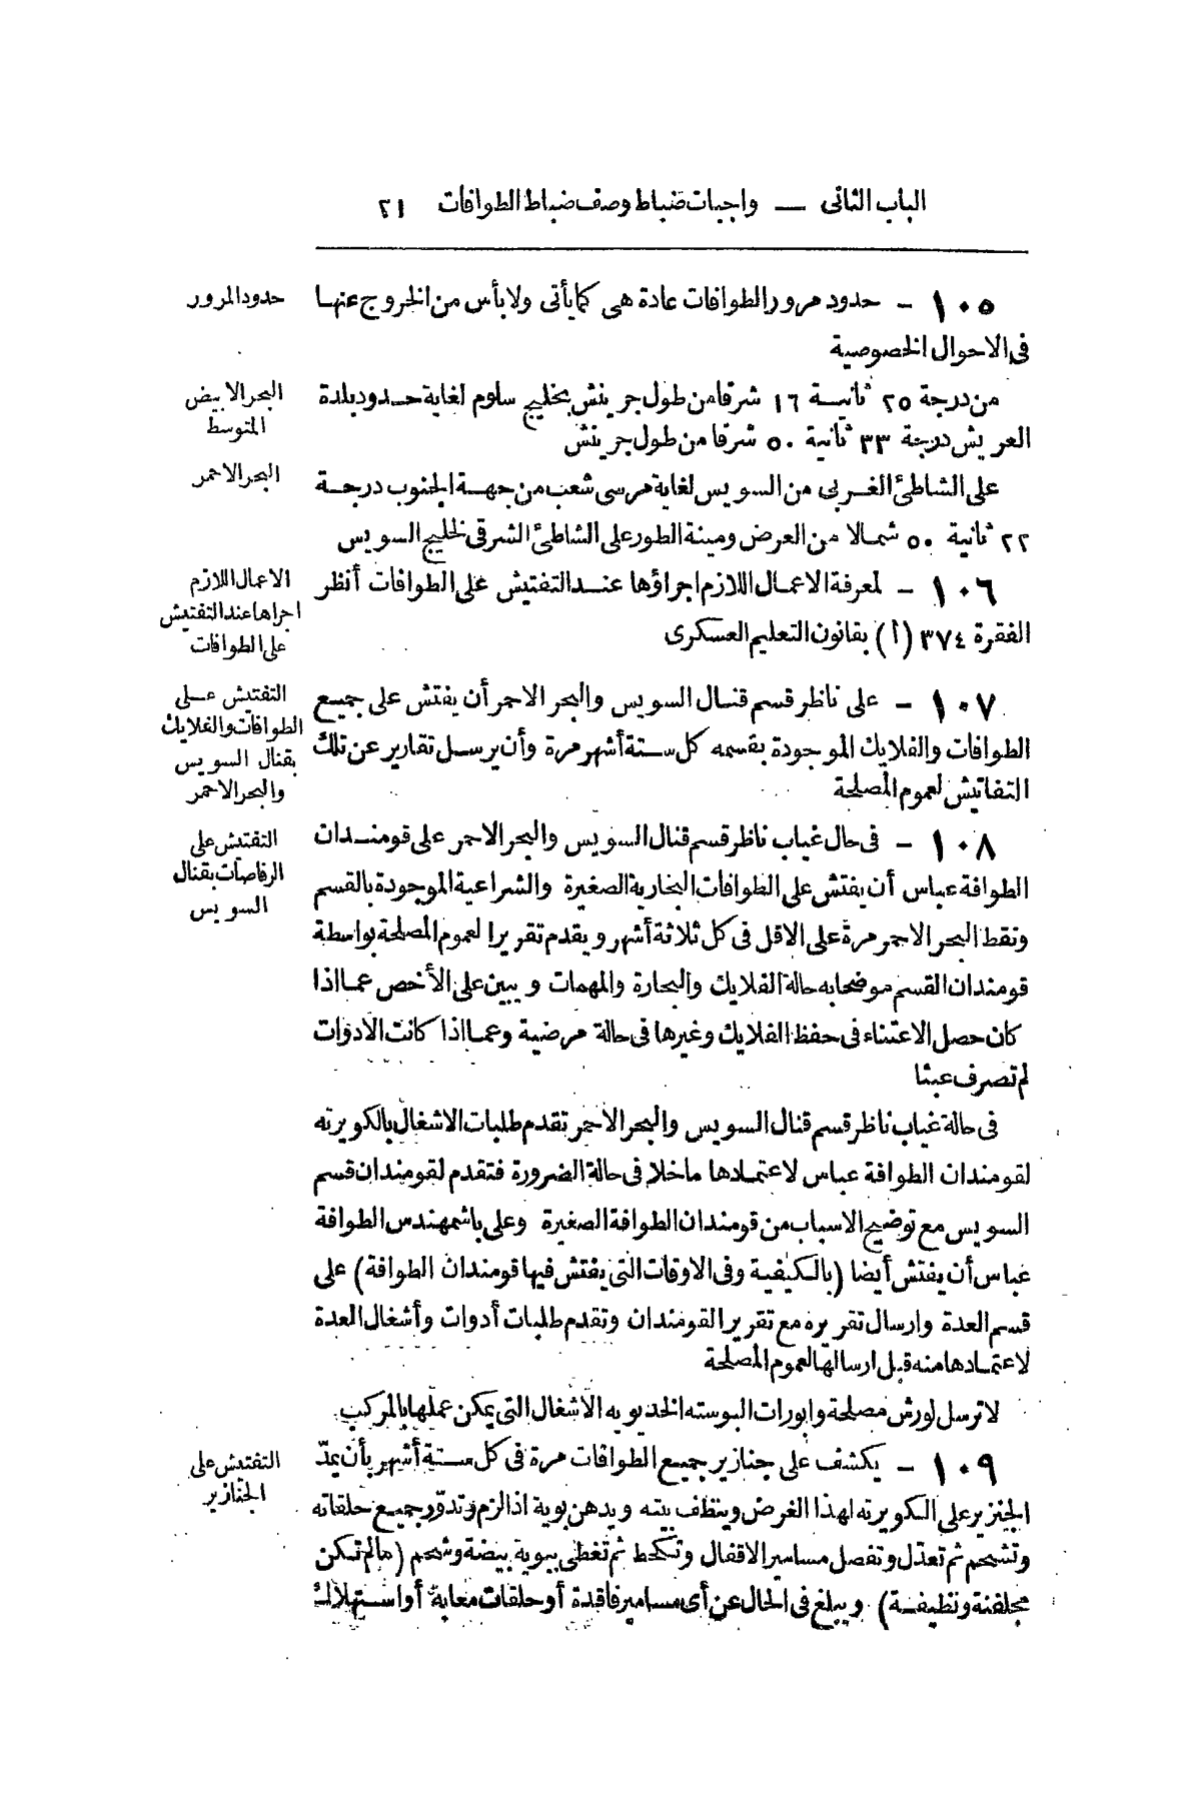 الباب الثانى — واجبات ضباط وصف ضباط الطوافات ٢١
١٠٥ - حدود مرور الطوافات عادة هى كما يأتى ولا بأس من الخروج عنها
حدود المرور
فى الاحوال الخصوصية
من درجة ٢٥ ثانيـة ١٦ شرقا من طول جرينتش بخليج سلوم لغاية حـدود بلدة
البحر الابيض
المتوسط
العريش درجة ٣٣ ثانية ٥٠ شرقا من طول جرينتش
على الشاطئ الغربى من السويس لغاية مرسى شعب من جهـة الجنوب درجـة
البحر الاحمر
٢٢ ثانية ٥٠ شمالا من العرض ومينة الطور على الشاطئ الشرقى لخليج السويس
١٠٦ - لمعرفة الاعمال اللازم اجراؤها عنـد التفتيش على الطوافات أنظر
الاعمال اللازم
اجراها عند التفتيش
على الطوافات
الفقرة ٣٧٤ (أ) بقانون التعليم العسكرى
١٠٧ - على ناظر قسم قنال السويس والبحر الاحمر أن يفتش على جميع
التفتيش عـلى
الطوافات والفلايك
بقنال السويس
والبحر الاحمر
الطوافات والفلايك الموجودة بقسمه كل ستة أشهر مرة وأن يرسل تقارير عن تلك
التفاتيش لعموم المصلحة
١٠٨ - فى حال غياب ناظر قسم قنال السويس والبحر الاحمر على قومنـدان
التفتيش على
الرفاصات بقنال
السويس
الطوافة عباس أن يفتش على الطوافات البخارية الصغيرة والشراعية الموجودة بالقسم
ونقط البحر الاحمر مرة على الاقل فى كل ثلاثة أشهر ويقدم تقريرا لعموم المصلحة بواسطة
قومندان القسم موضحا به حالة الفلايك والبحارة والمهمات ويبين على الأخص عما اذا
كان حصل الاعتناء فى حفظ الفلايك وغيرها فى حالة مرضية وعما اذا كانت الادوات
لم تصرف عبثا
فى حالة غياب ناظر قسم قنال السويس والبحر الاحمر تقدم طلبات الاشغال بالكويرته
لقومندان الطوافة عباس لاعتمادها ماخلا فى حالة الضرورة فتقدم لقومندان قسم
السويس مع توضيح الاسباب من قومندان الطوافة الصغيرة وعلى باشمهندس الطوافة
عباس أن يفتش أيضا (بالكيفية وفى الاوقات التى يفتش فيها قومندان الطوافة) على
قسم العدة وارسال تقريره مع تقرير القومندان وتقدم طلبات أدوات وأشغال العدة
لاعتمادها منه قبل ارسالها لعموم المصلحة
لا ترسل لورش مصلحة وابورات البوسته الخديويه الاشغال التى يمكن عملها بالمركب
١٠٩ - يكشف على جنازير جميع الطوافات مرة فى كل ستة أشهر بأن يمدّ
التفتيش على
الجنازير
الجنزير على الكويرته لهذا الغرض وينظف بيته ويدهن بوية اذا لزم وتدوّر جميع حلقاته
وتشحم ثم تعدّل وتفصل مسامير الاقفال وتكحط ثم تغطى ببوية بيضة وشحم (مالم تكن
مجلفنة ونظيفـة) ويبلغ فى الحال عن أى مسامير فاقدة أو حلقات معابة أو استهلاك